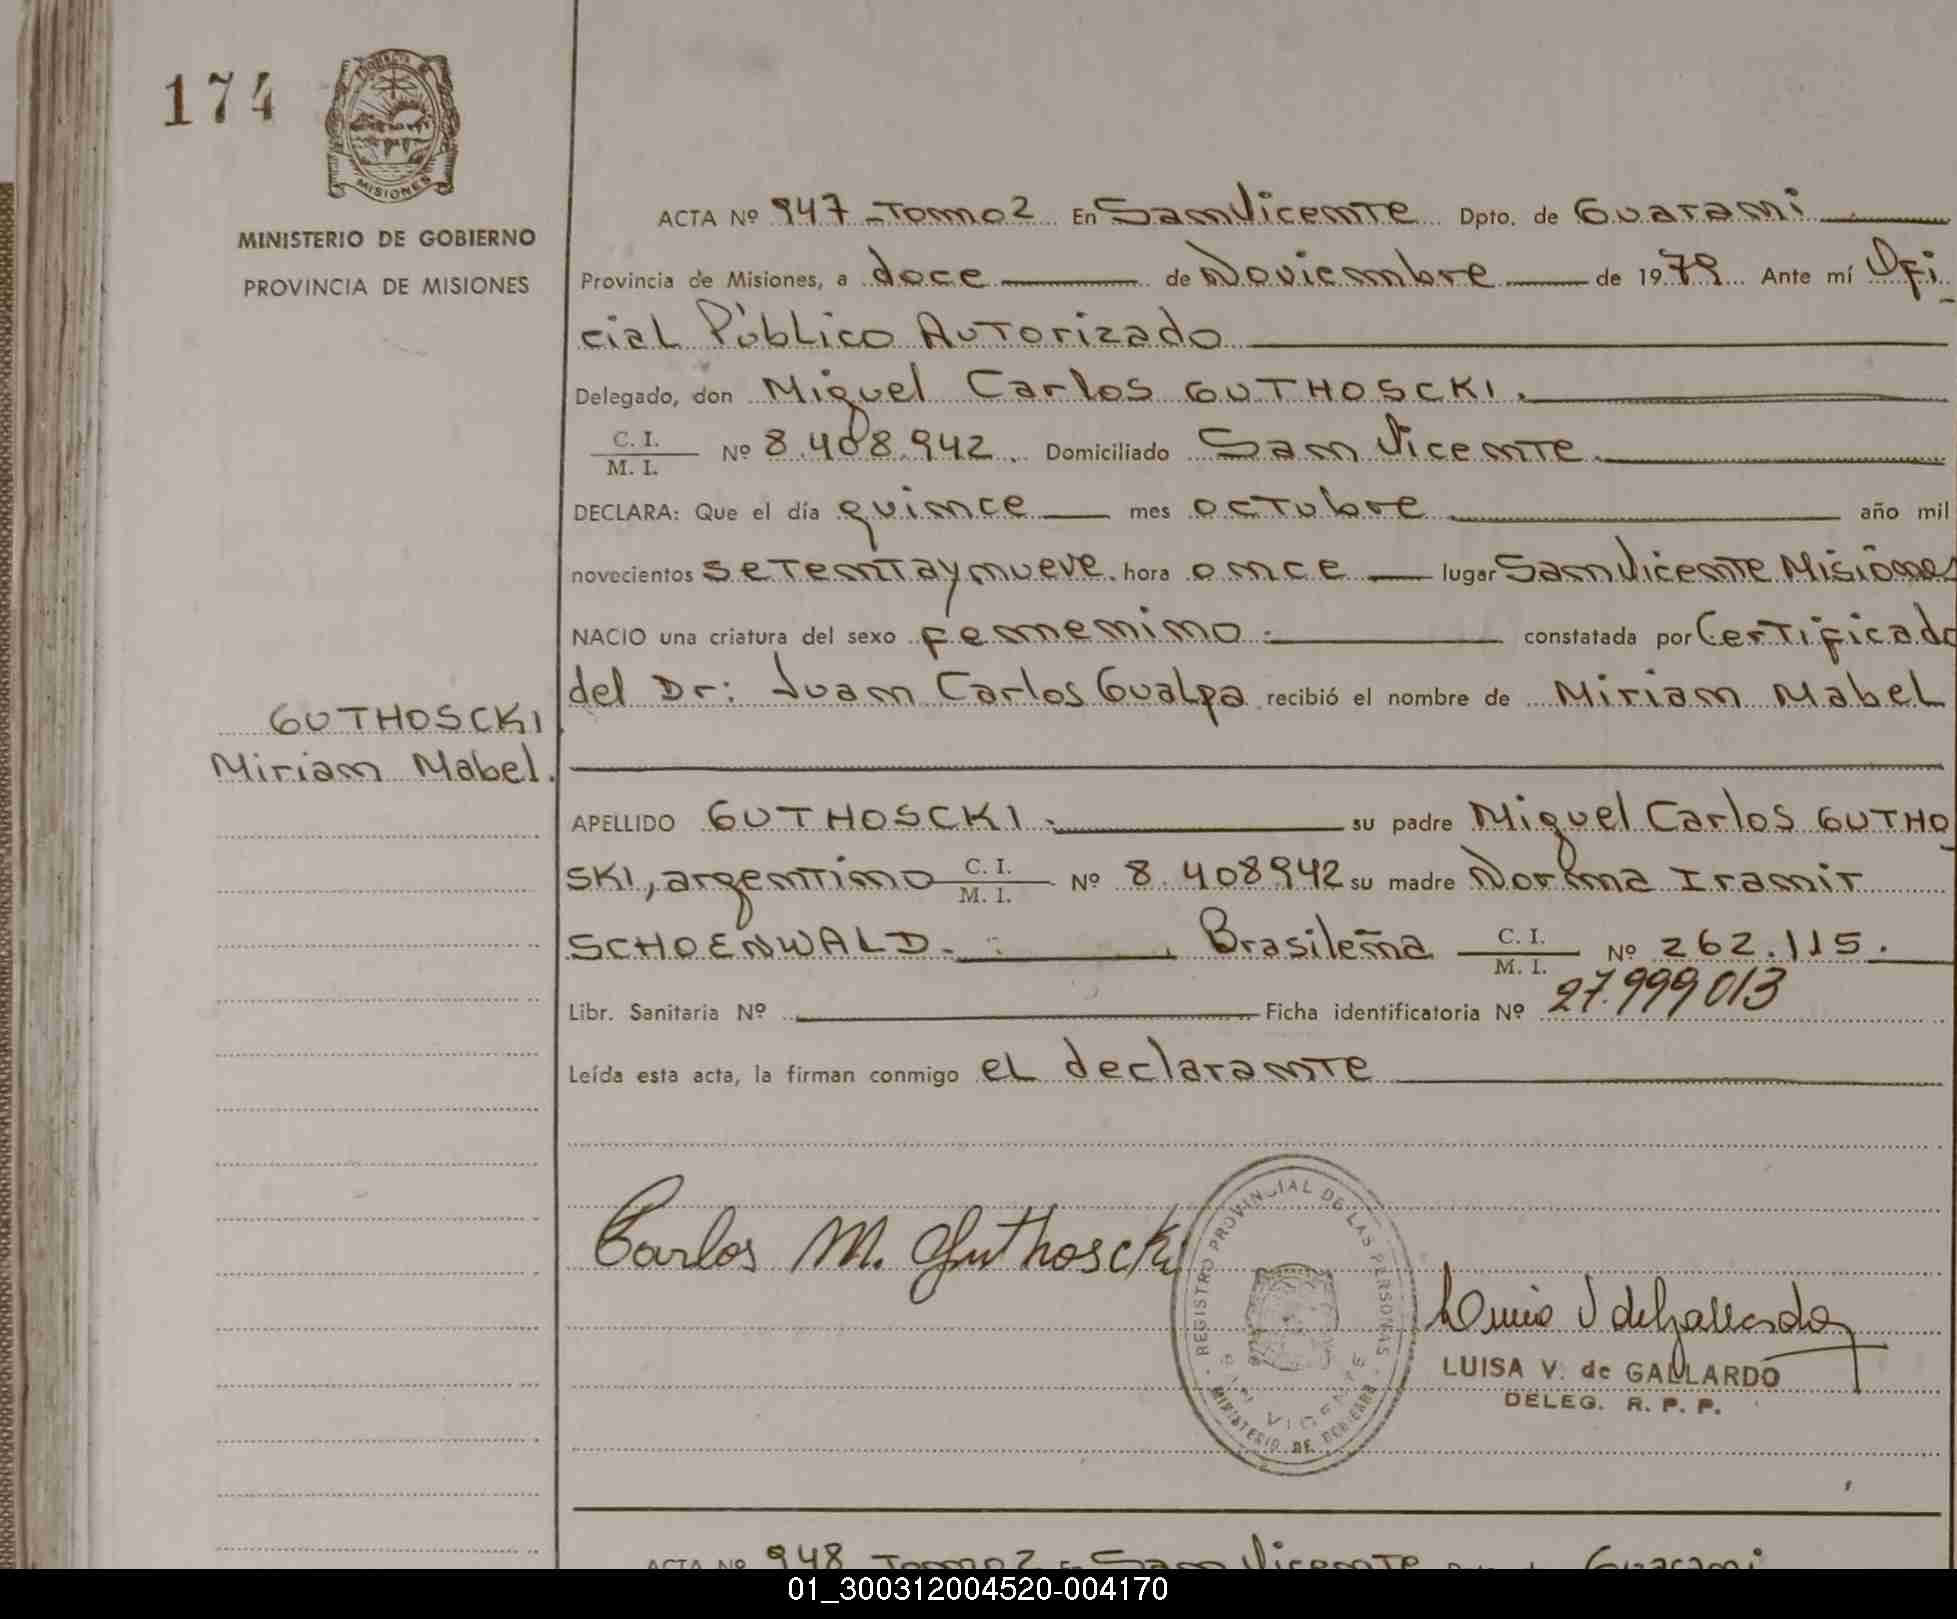 174
MISIONES
MINISTERIO DE GOBIERNO
PROVINCIA DE MISIONES
ACTA Nº 947 - Tomo 2 En San Vicente Dpto. de Guaraní
Provincia de Misiones, a doce de Noviembre de 1979 Ante mí Ofi
cial Público Autorizado
Delegado, don Miguel Carlos GUTHOSCKI.
C. I. / M. I. Nº 8.408.942. Domiciliado San Vicente
DECLARA: Que el día quince mes octubre año mil
novecientos setenta y nueve. hora once lugar San Vicente Misiones
NACIO una criatura del sexo femenino. constatada por Certificado
del Dr: Juan Carlos Gualpa recibió el nombre de Miriam Mabel
GUTHOSCKI
Miriam Mabel.
APELLIDO GUTHOSCKI. su padre Miguel Carlos GUTHO
SKI, argentino C. I. / M. I. Nº 8.408942 su madre Norma Iranir
SCHOENWALD. Brasileña C. I. / M. I. Nº 262.115.
Libr. Sanitaria Nº Ficha identificatoria Nº 27.999.013
Leída esta acta, la firman conmigo el declarante
Carlos M. Guthoscki
REGISTRO PROVINCIAL DE LAS PERSONAS
SAN VICENTE
MINISTERIO DE GOBIERNO
Luisa V de Gallardo
LUISA V. de GALLARDO
DELEG. R. P. P.
ACTA Nº 948 Tomo 2 En San Vicente Guaraní
01_300312004520-004170